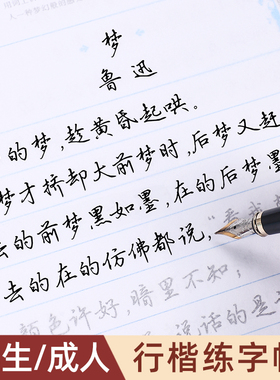 梦
鲁迅
的梦,趁黄昏起哄。
梦才挤却大前梦时,后梦又赶
去的前梦黑如墨,在的后梦墨
去的在的仿佛都说,
颜色许好,暗里不知;
说话的是
生/成人 行楷练字帖